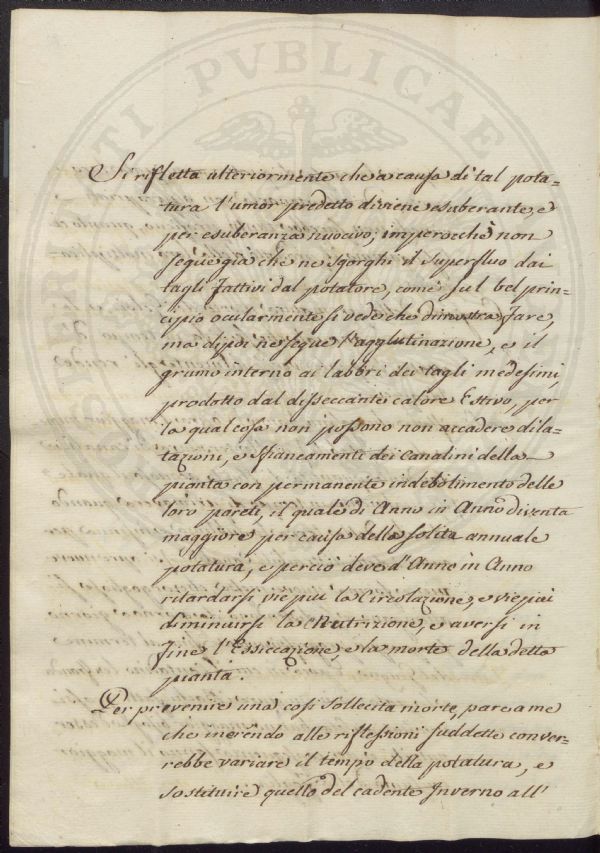 Si rifletta ulteriormente che a causa di tal pota=
tura l'umor predetto diviene esuberante, e
per esuberanza nuocivo; imperocchè non
segue già che ne sgorghi il superfluo dai
tagli fattivi dal potatore, come sul bel prin=
cipio ocularmente si vede che dimostra fare,
ma di poi ne segue l'agglutinazione, e il
grumo interno ai labbri dei tagli medesimi,
prodotto dal disseccante calore Estivo, per
la qual cosa non possono non accadere dila=
tazioni, e sfiancamenti dei canalini della
pianta con permanente indebolimento delle
loro pareti, il quale di Anno in Anno diventa
maggiore per causa della solita annuale
potatura, e perciò deve d'Anno in Anno
ritardarsi vie più la Circolazione, e vie più
diminuirsi la Nutrizione, e aversi in
fine l'Essiccazione, e la morte della detta
pianta.
Per prevenire una così sollecita morte, pare a me
che inerendo alle riflessioni suddette conver=
rebbe variare il tempo della potatura, e
sostituire quello del cadente Inverno all'
PUBLICAE